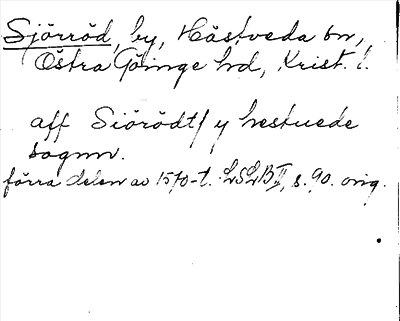 Sjörröd, by, Hästveda sn,
Östra Göinge hd, Krist. l.
aff Siörödt / y hestuede
sognn.
förra delen av 1570-t. LSLB II, s. 90. orig.